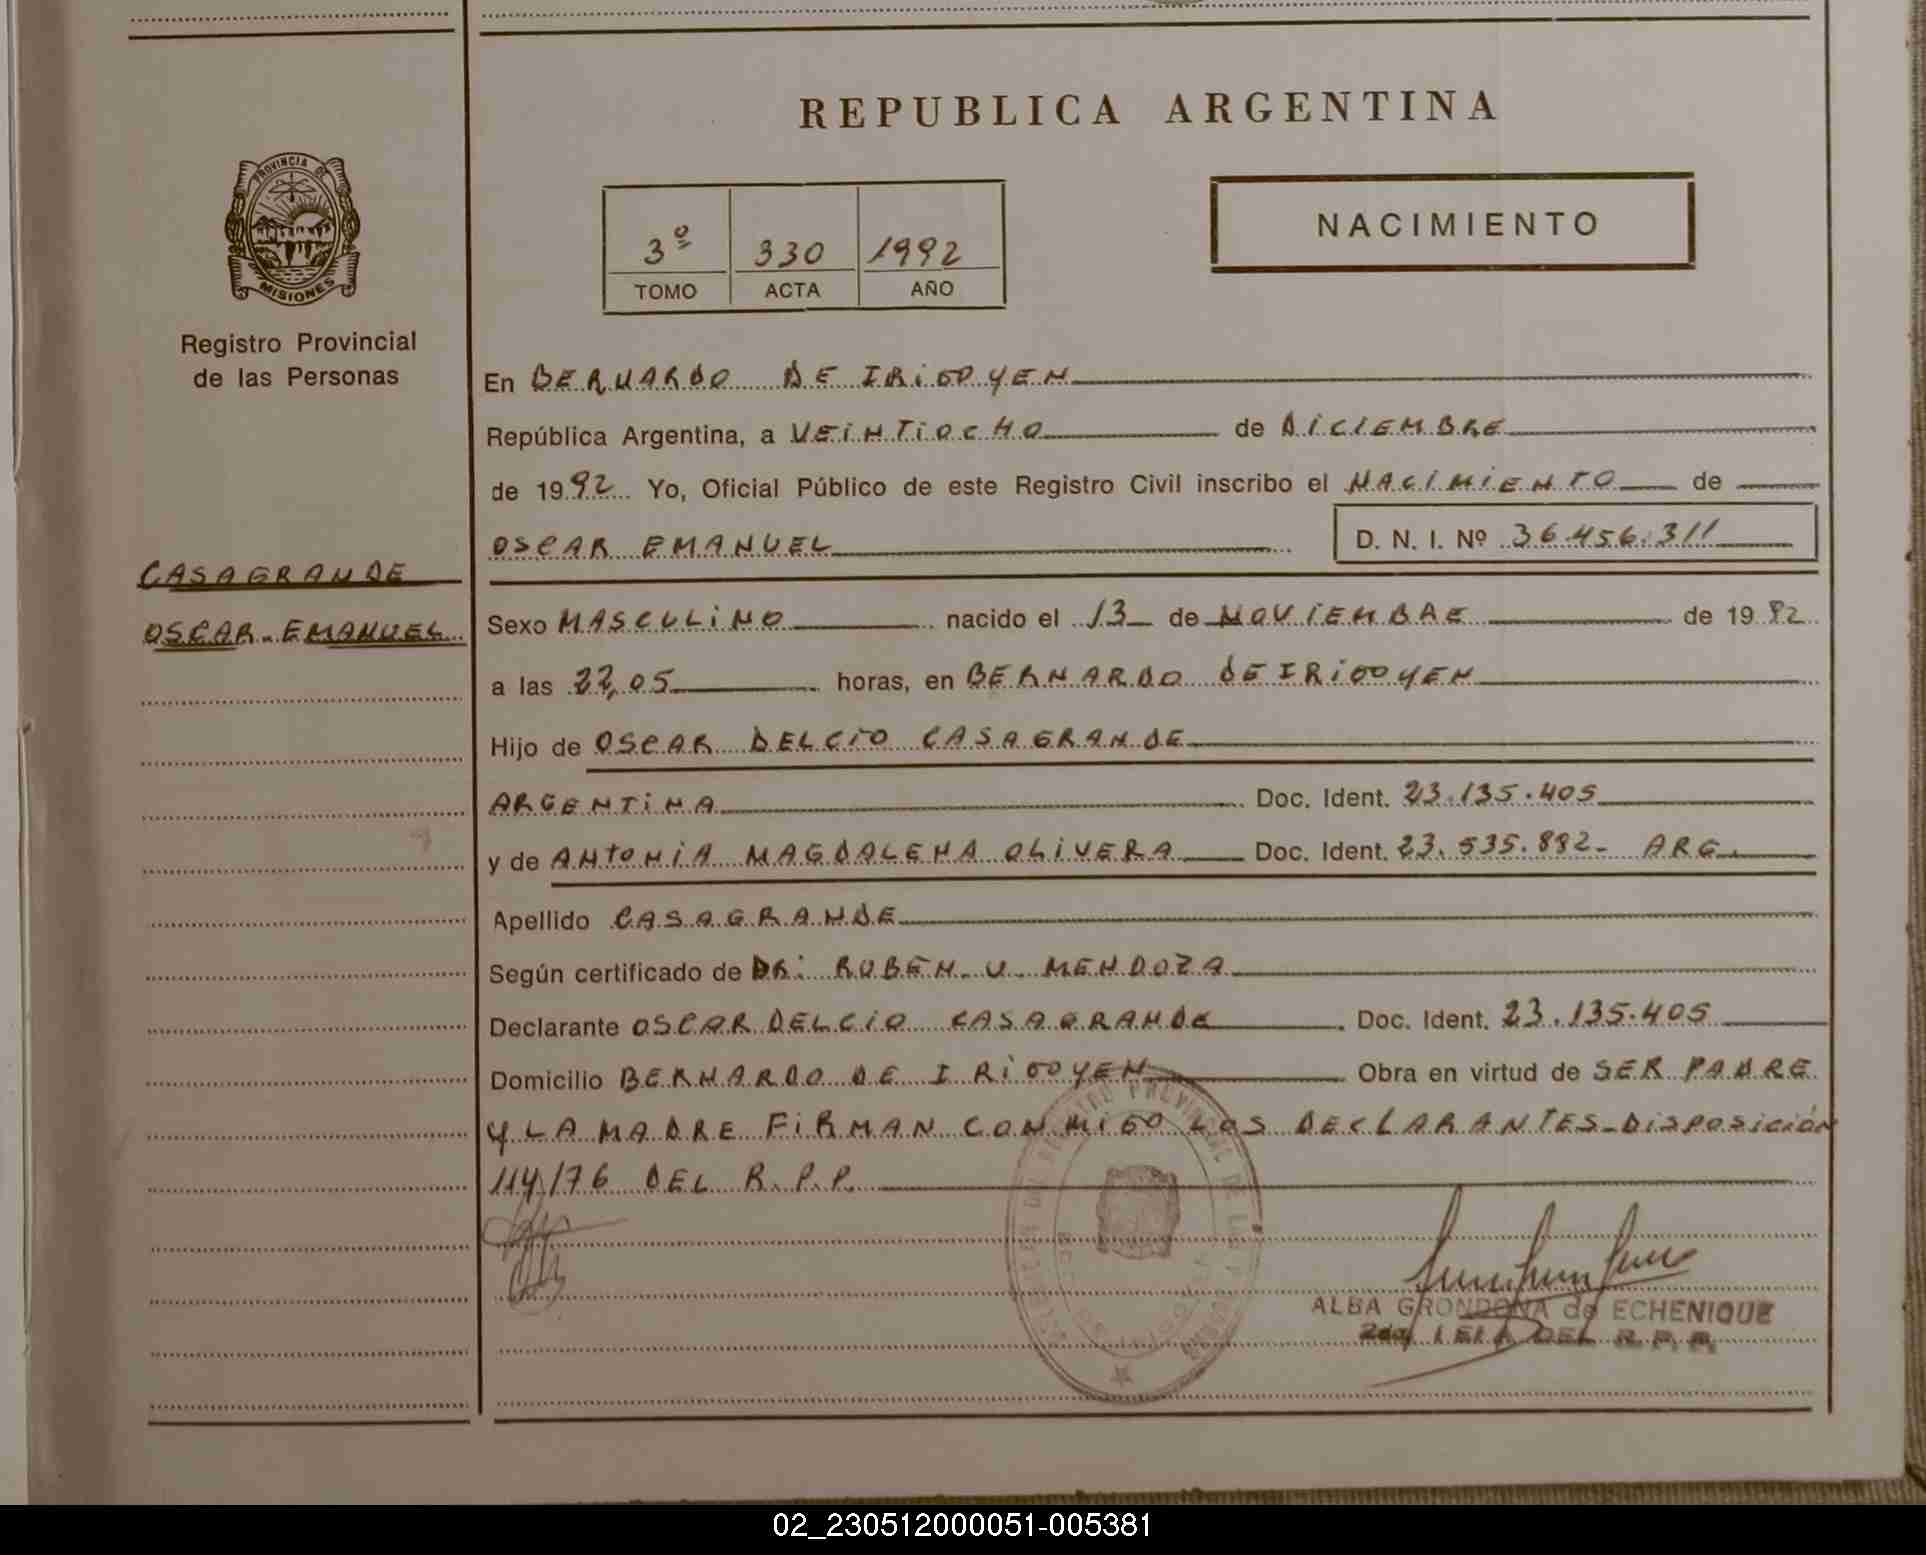 REPUBLICA ARGENTINA
PROVINCIA DE
MISIONES
Registro Provincial
de las Personas
3º 330 1992
TOMO ACTA AÑO
NACIMIENTO
En BERNARDO DE IRIGOYEN
República Argentina, a VEINTIOCHO de DICIEMBRE
de 1992 Yo, Oficial Público de este Registro Civil inscribo el NACIMIENTO de
OSCAR EMANUEL D. N. I. Nº 36.456.311
CASAGRANDE
OSCAR-EMANUEL
Sexo MASCULINO nacido el 13 de NOVIEMBRE de 1992
a las 22,05 horas, en BERNARDO DE IRIGOYEN
Hijo de OSCAR DELCIO CASAGRANDE
ARGENTINA Doc. Ident. 23.135.405
y de ANTONIA MAGDALENA OLIVERA Doc. Ident. 23.535.892- ARG.
Apellido CASAGRANDE
Según certificado de DR: RUBEN U. MENDOZA
Declarante OSCAR DELCIO CASAGRANDE Doc. Ident. 23.135.405
Domicilio BERNARDO DE IRIGOYEN Obra en virtud de SER PADRE
Y LA MADRE FIRMAN CONMIGO LOS DECLARANTES-DISPOSICIÓN
114/76 DEL R.P.P.
ALBA GRONDONA de ECHENIQUE
DEL R.P.P.
02_230512000051-005381